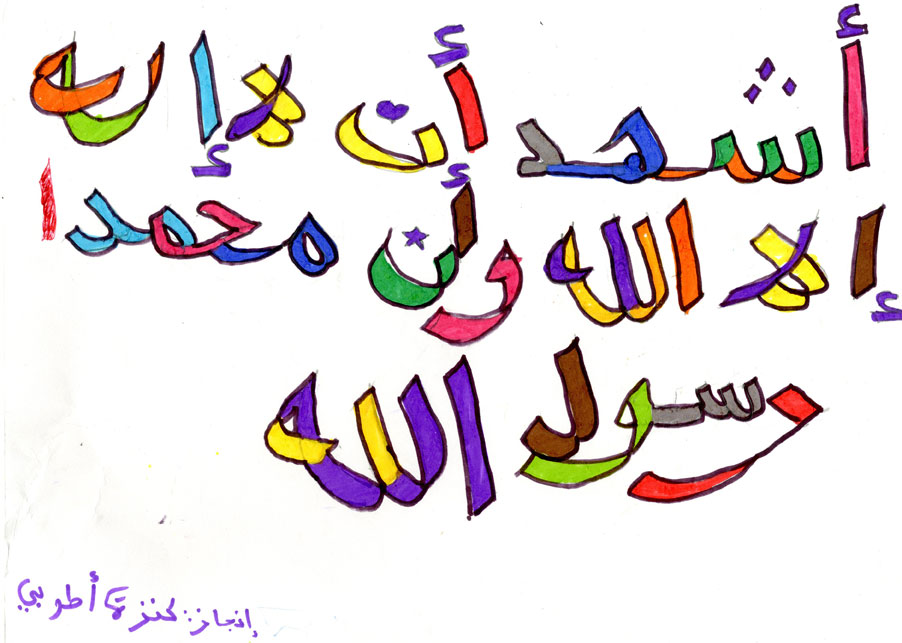 أشهد أن لا إله
إلا الله وأن محمدا
رسول الله
إنجاز: كنزة أطوبي